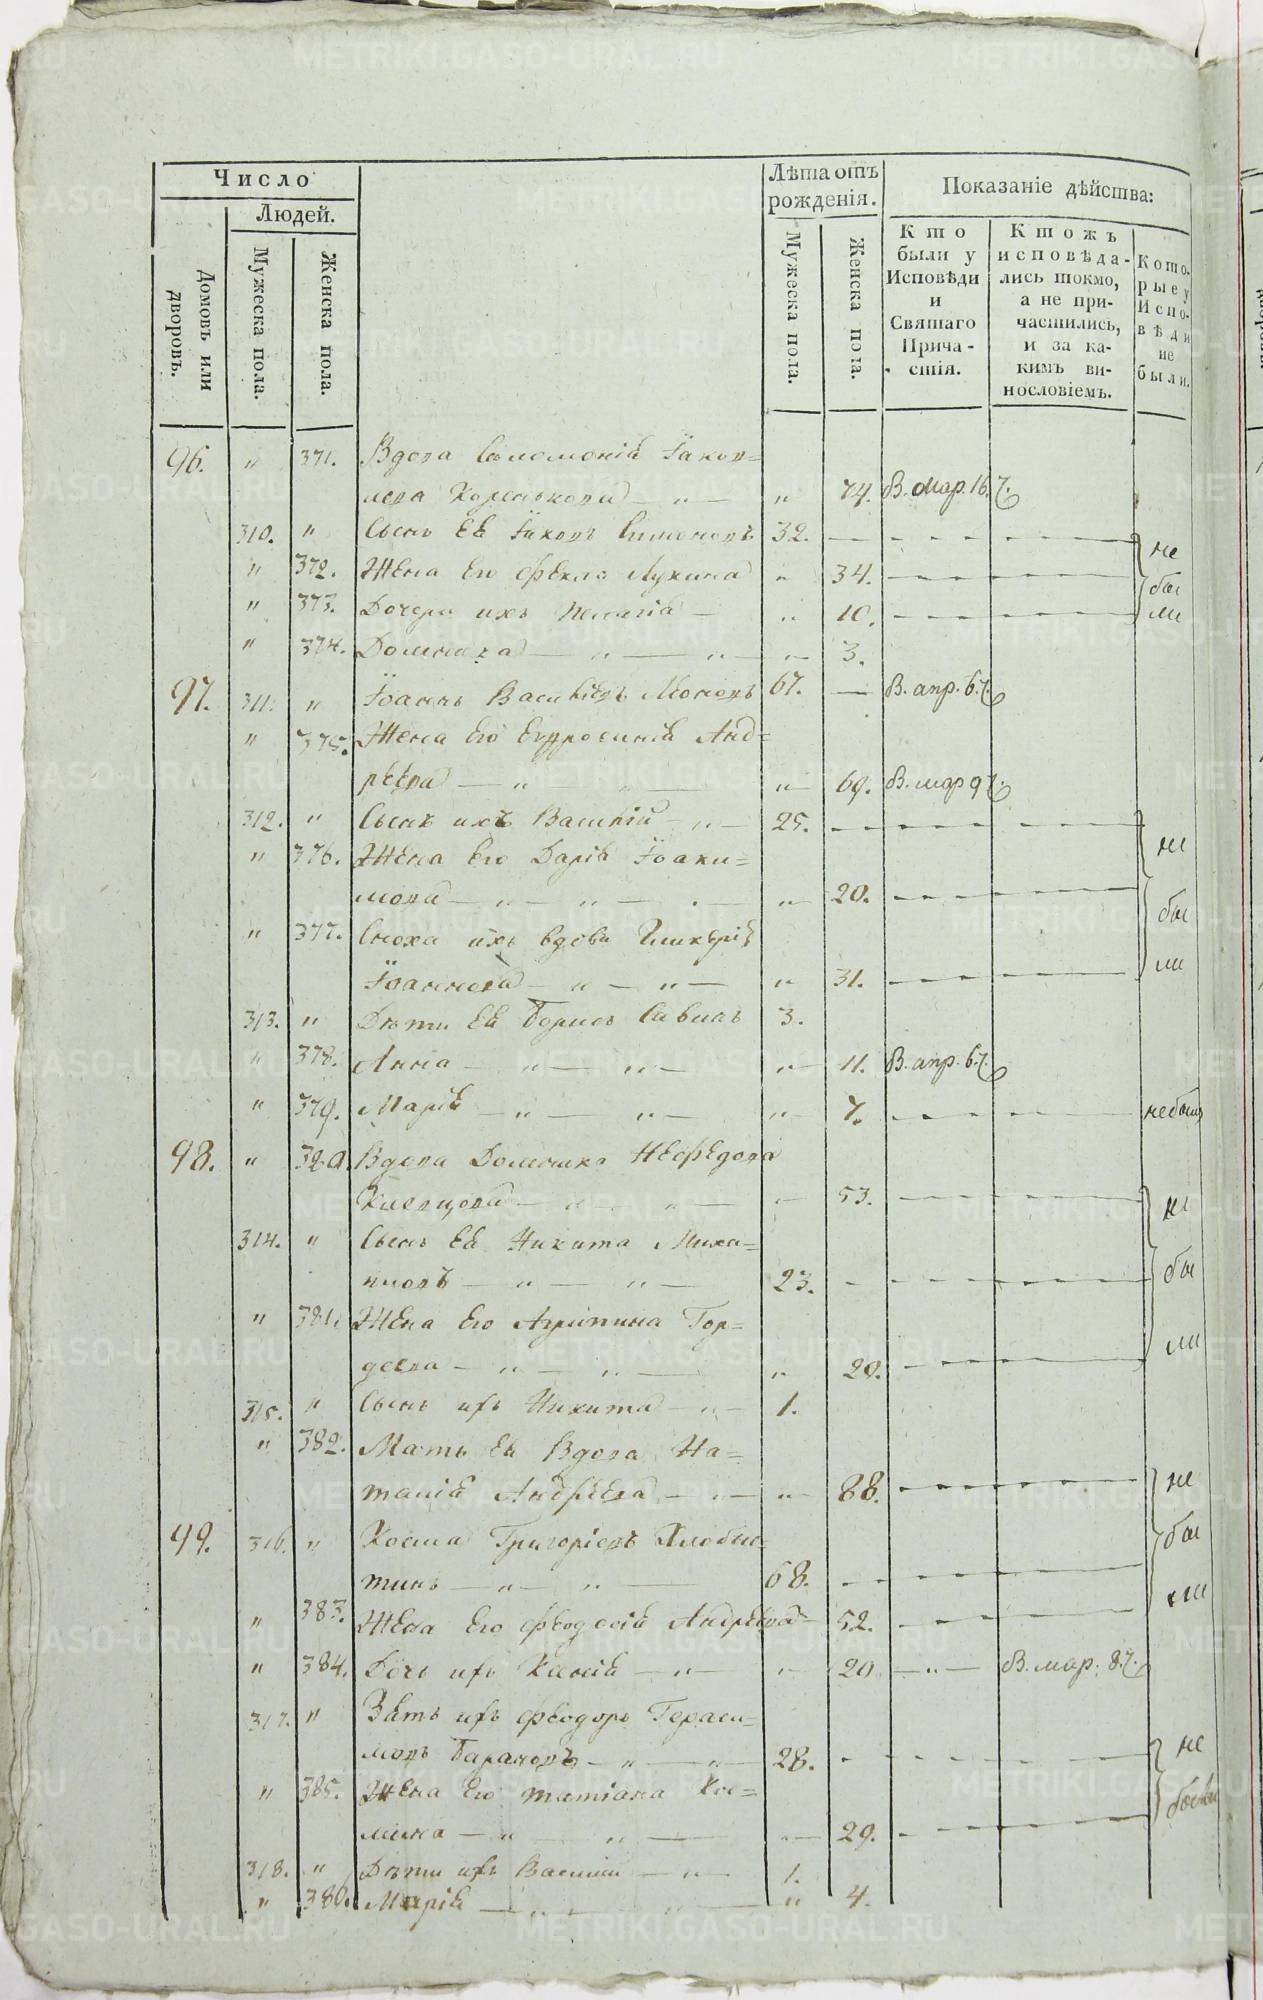 Число
Людей.
Домовъ или дворовъ.
Мужеска пола.
Женска пола.
Лѣта отъ рожденія.
Мужеска пола.
Женска пола.
Показаніе дѣйства:
Кто были у Исповѣди и Святаго Причастія.
Ктожъ исповѣдались токмо, а не причастились, и за какимъ винословіемъ.
Которые у Исповѣди не были.
96. " 371. Вдова Саломонія Іаков=
лева " 74. В. мар. 16. 7.
310. " Сынъ Ея Іаковъ Симеоновъ 32.
" 372. Жена Его Фекла Лукина " 34.
" 373. Дочери ихъ Пелагія " 10.
не были
" 374. Домника " " " 3.
97. 311. " Іоаннъ Васильевъ 67. В. апр. 6. 7.
" 375. Жена Его Евфросинія Анд=
рѣева " " 69. В. мар 9 7.
312. " Сынъ ихъ Василій " 25.
" 376. Жена Его Дарія Іоаки=
мова " " " 20.
" 377. Сноха ихъ вдова Гликерія
Іоаннова " " " 31.
не были
313. " Дѣти Ея Борисъ Савинъ 3.
" 378. Анна " " " 11. В. апр. 6. 7.
" 379. Марія " " " 7. не были
98. " 380. Вдова Домника Нефедова
" " " 53.
314. " Сынъ Ея Никита Миха=
иловъ " " 23.
" 381. Жена Его Агрипина Гор=
деева " " " 20.
не были
315. " Сынъ ихъ Никита " 1.
" 382. Мать Ея Вдова На=
талія Андрѣева " " 88.
99. 316. " Косма Григорьевъ
" " 68.
" 383. Жена Его Феодосія Андрѣева 52.
не были
" 384. Дочь ихъ Ксенія " " 20 " В. мар. 8. 7.
317. " Зять ихъ Феодоръ Гераси=
мовъ Барановъ " " 28.
" 385. Жена Его татіана Кос=
мина " " " 29.
не были
318. " Дѣти ихъ Василій " 1.
" 386. Марія " " " 4.
METRIKI.GASO-URAL.RU